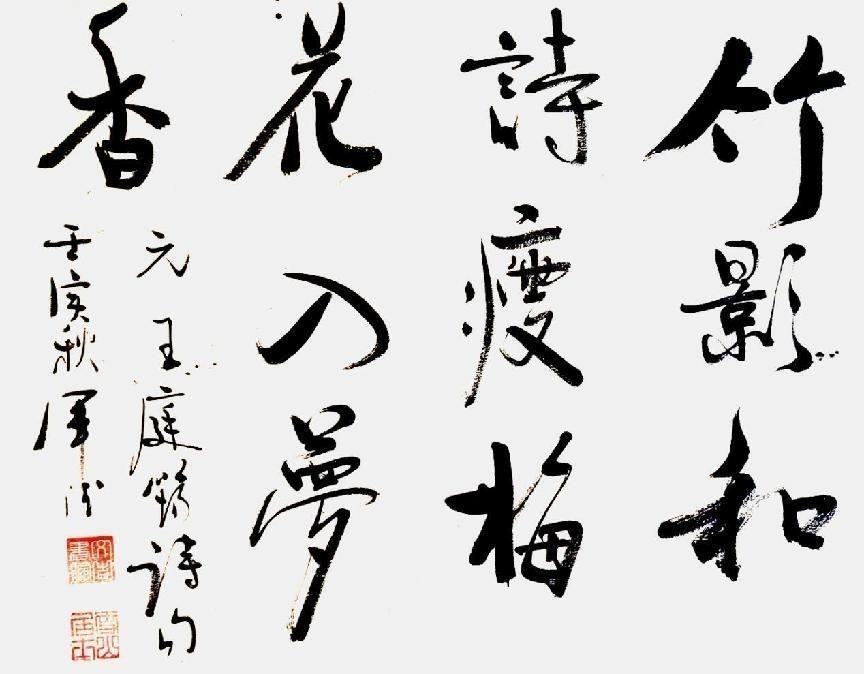 竹影和
詩瘦梅
花入夢
香
元王庭筠詩句
壬寅秋